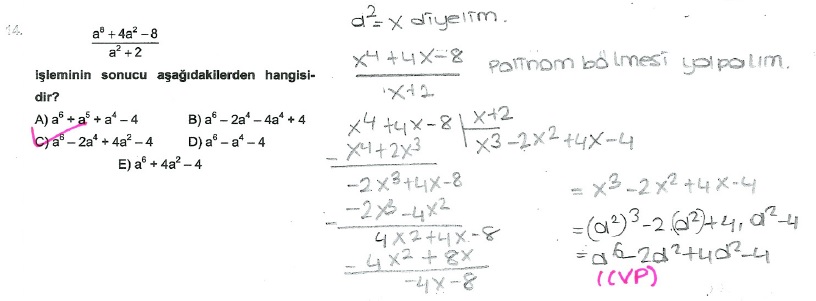 14.
a⁸ + 4a² – 8
a² + 2
işleminin sonucu aşağıdakilerden hangisi-
dir?
A) a⁶ + a⁵ + a⁴ – 4 B) a⁶ – 2a⁴ – 4a⁴ + 4
C) a⁶ – 2a⁴ + 4a² – 4 D) a⁶ – a⁴ – 4
E) a⁶ + 4a² – 4
a²=x diyelim.
x⁴+4x-8
x+2
Polinom bölmesi yapalım.
x⁴+4x-8 | x+2
x³-2x²+4x-4
- x⁴+2x³
-2x³+4x-8
- -2x³-4x²
4x²+4x-8
- 4x²+8x
-4x-8
= x³-2x²+4x-4
=(a²)³-2.(a²)²+4.a²-4
=a⁶-2a²+4a²-4
(CVP)